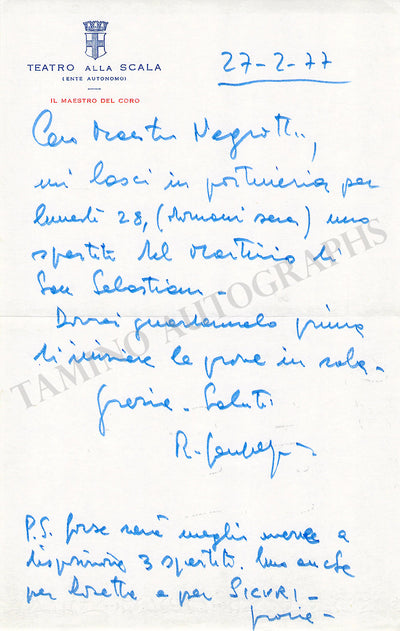 TEATRO ALLA SCALA
(ENTE AUTONOMO)
IL MAESTRO DEL CORO
27-2-77
Caro Maestro Negrotti,
mi lasci in portineria per
lunedì 28, (domani sera) uno
spartito del Martirio di
San Sebastian -
Dovrei guardarmelo prima
di iniziare le prove in sala -
Grazie - Saluti
R.
P.S. forse sarà meglio mettere a
disposizione 3 spartiti. Uno anche
per e per SICURI -
grazie -
TAMINO AUTOGRAPHS